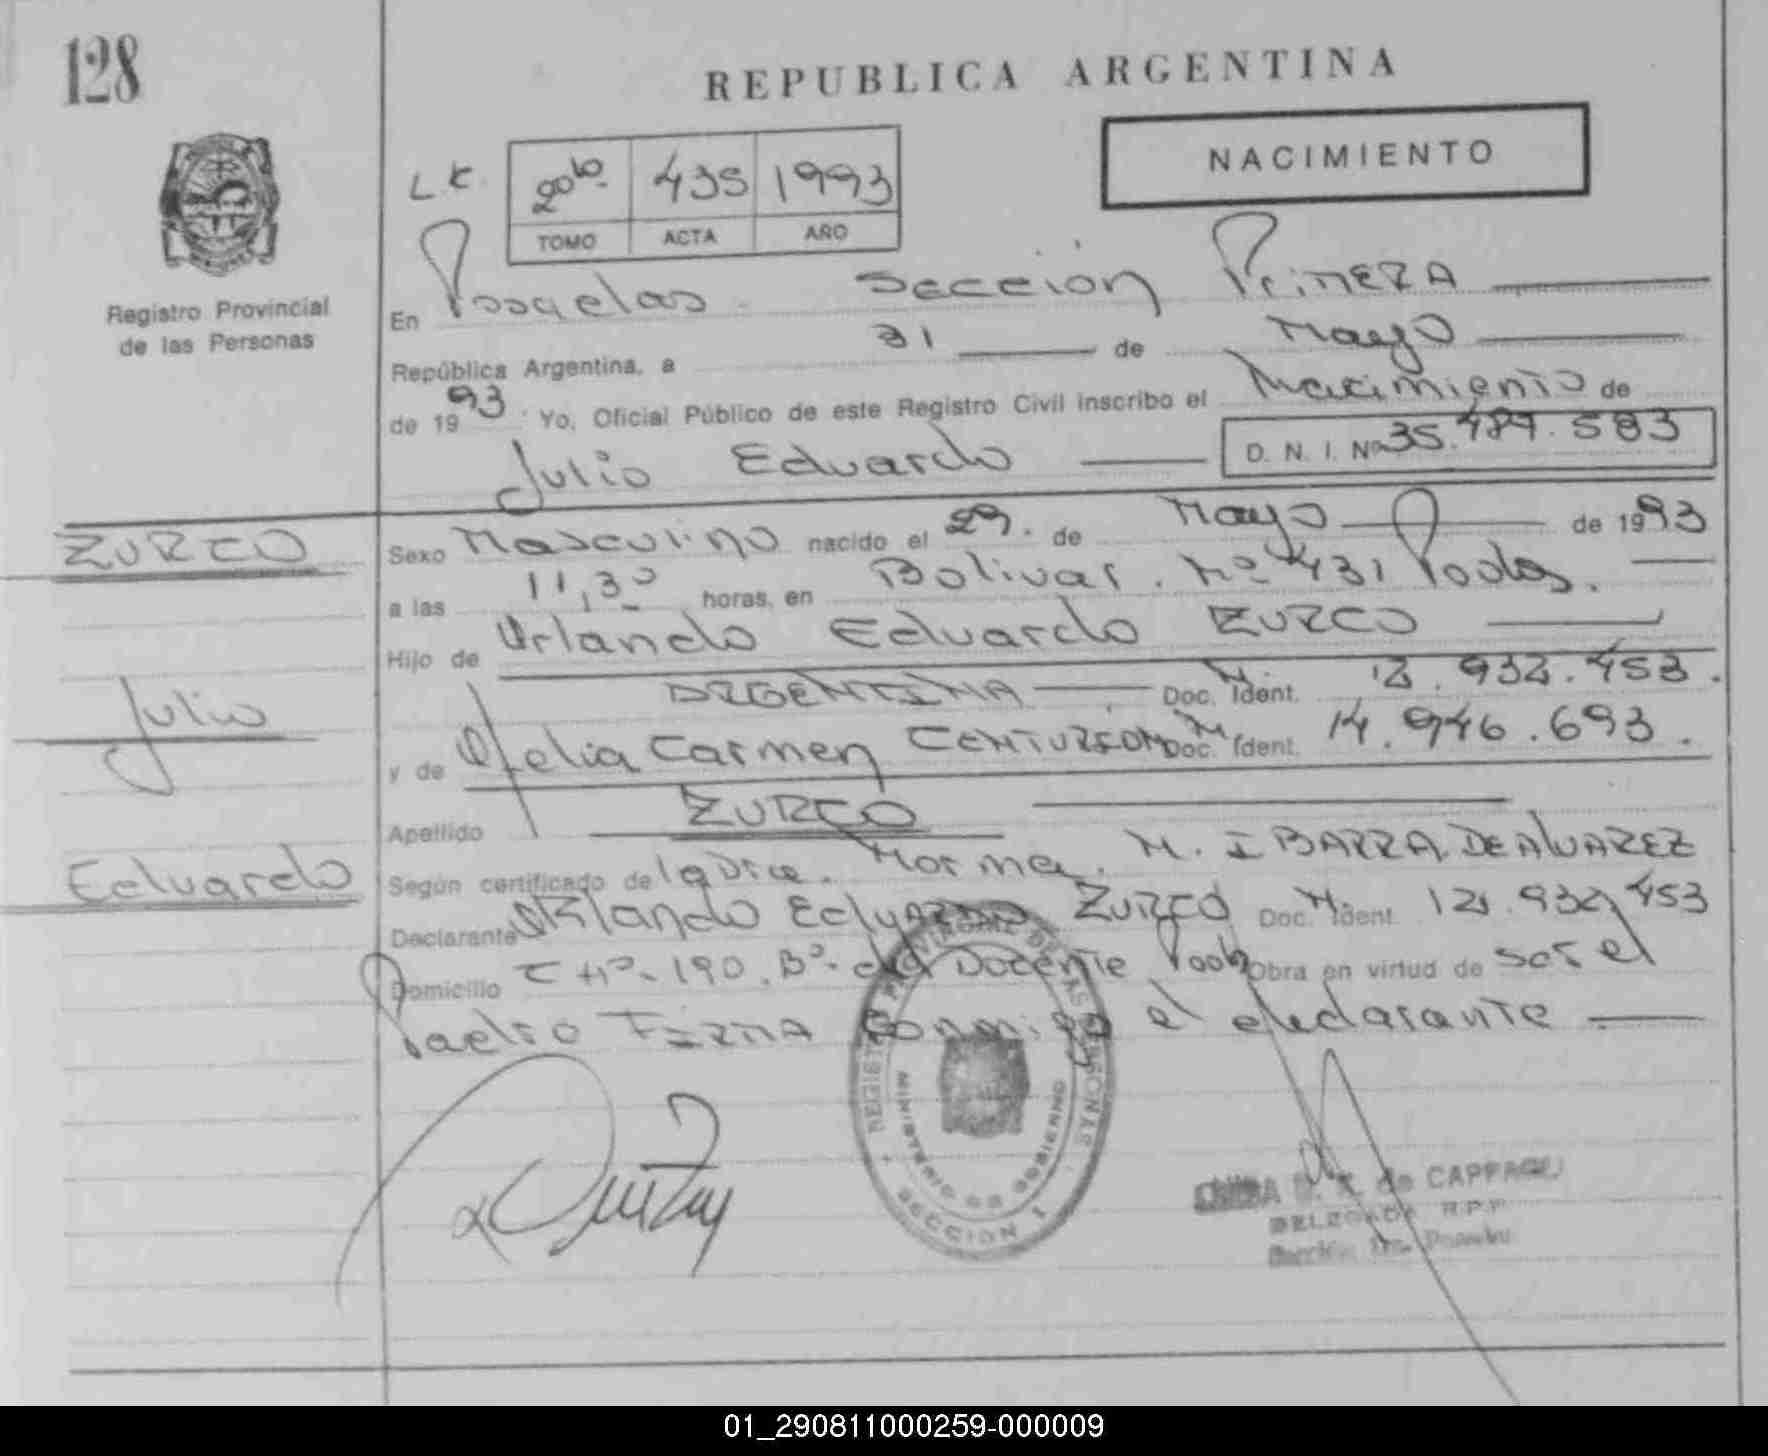 128
REPUBLICA ARGENTINA
NACIMIENTO
2º bo. 435 1993
TOMO ACTA AÑO
Registro Provincial
de las Personas
En Posadas. Sección Primera
República Argentina, a 31 de Mayo
de 1993. Yo, Oficial Público de este Registro Civil inscribo el Nacimiento de
Julio Eduardo D. N. I. Nº 35.487.583
ZURCO
Sexo Masculino nacido el 29. de Mayo de 1993
a las 11,30 horas, en Bolivar. Nº 431 Podas.
Hijo de Orlando Eduardo ZURCO
ARGENTINA Doc. Ident. M. 12.932.453.
Julio
y de Ofelia Carmen CENTURION Doc. Ident. M. 14.946.693.
Apellido ZURCO
Eduardo
Según certificado de la Dra. Norma. M. IBARRA DE ALVAREZ
Declarante Orlando Eduardo ZURCO Doc. Ident. M. 12.932.453
Domicilio C Nº 190. Bº. del Docente Obra en virtud de ser el
Padre Firma Conmigo el declarante
REGISTRO PROVINCIAL DE LAS PERSONAS
MINISTERIO DE GOBIERNO
SECCION 1
de CAPPAGLI
DELEGADA R.P.P.
01_290811000259-000009